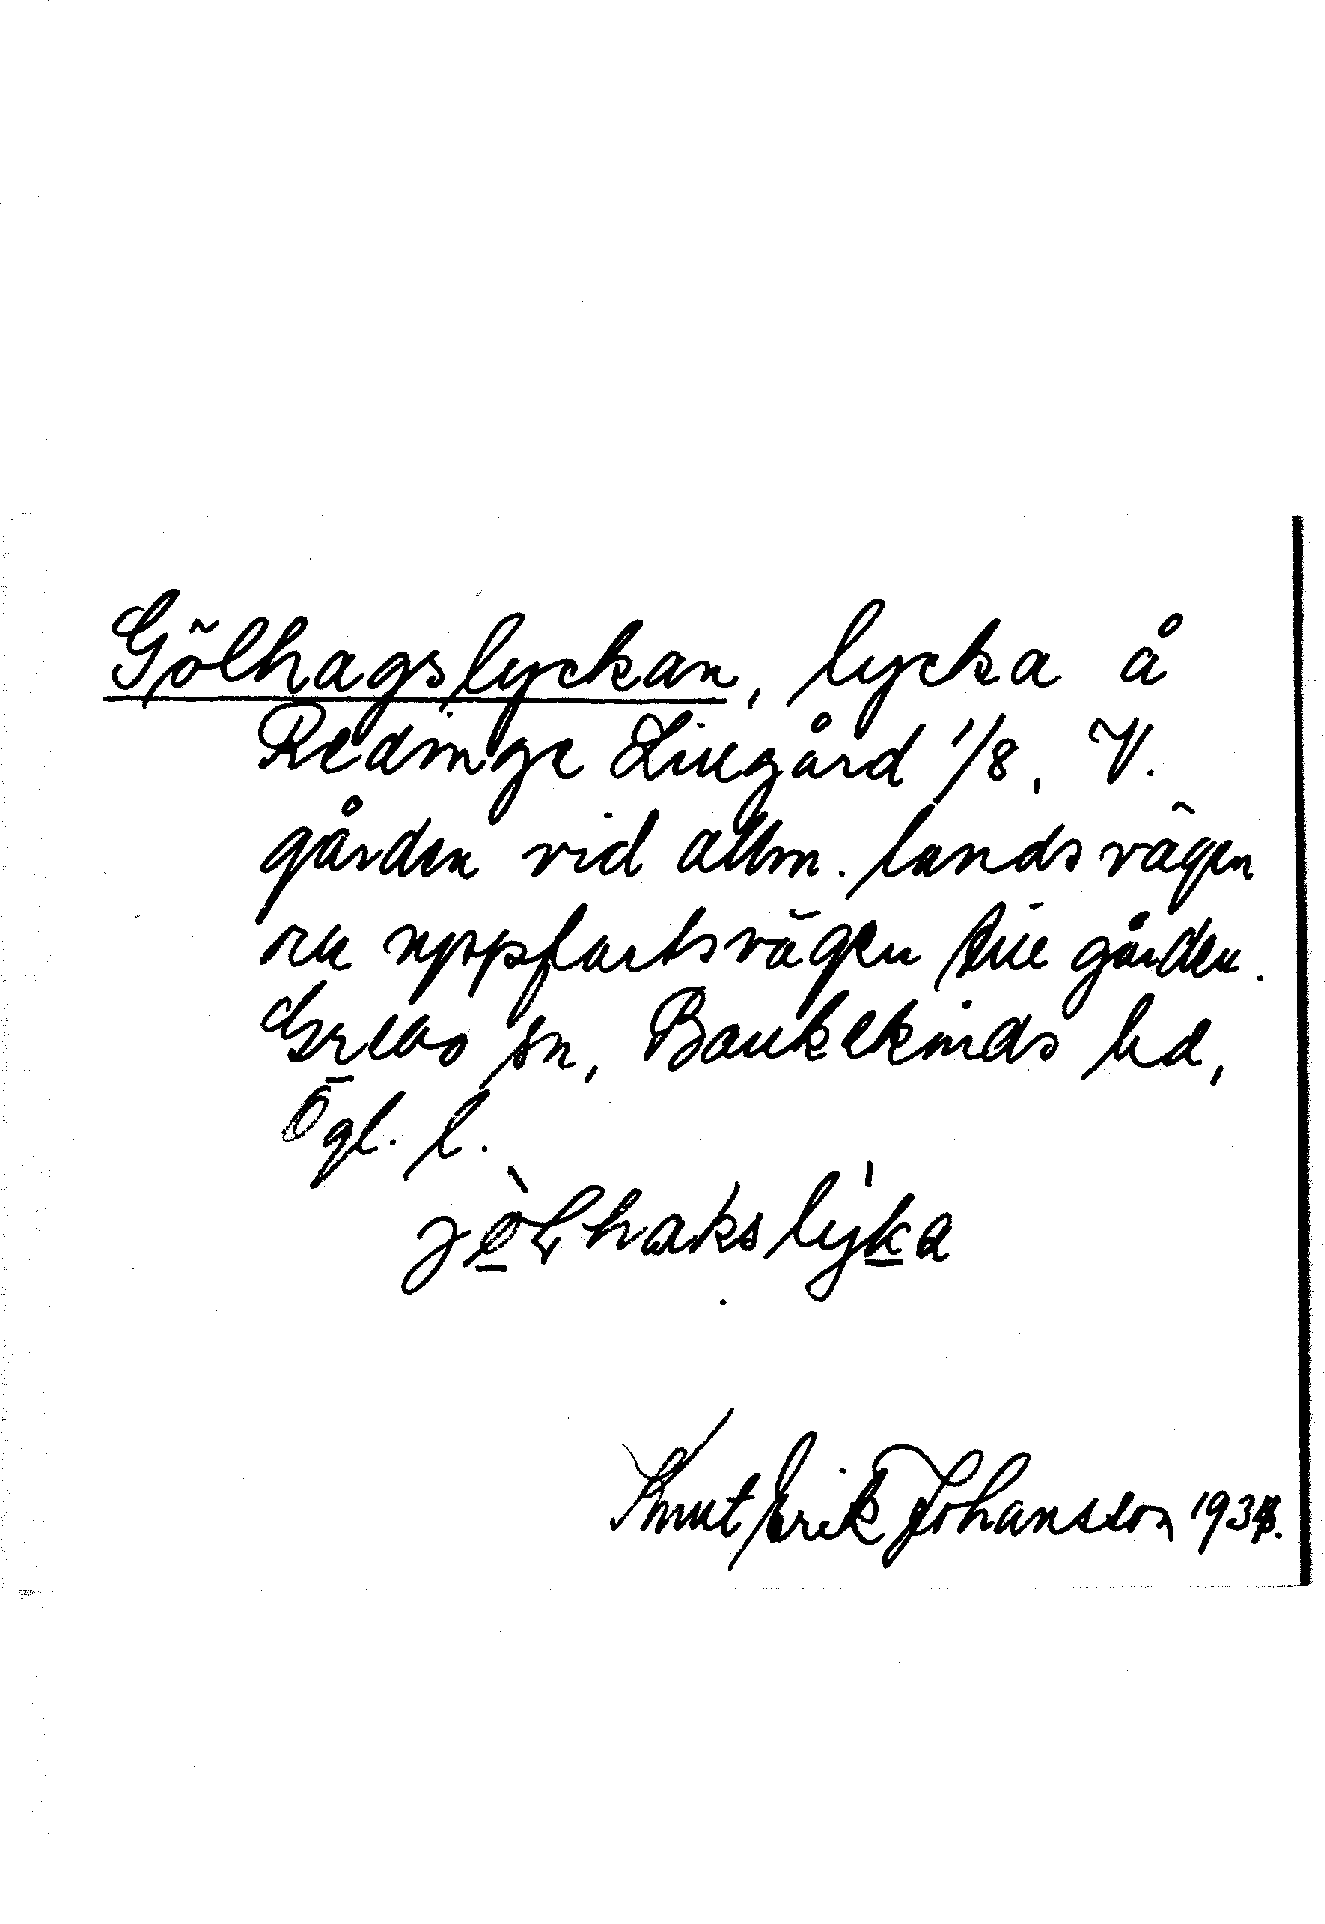 Gölhagslyckan, lycka å
Redinge Lillgård 1/8. V.
gården vid allm. landsvägen
och uppfartsvägen till gården.
Grebo sn, Bankekinds hd,
Ögl. l.
Knut Erik Johansson